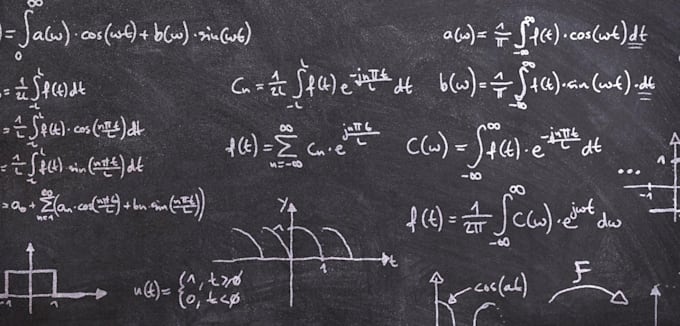 = ∫₀^∞ a(ω)·cos(ωt) + b(ω)·sin(ωt)
a(ω) = 1/π ∫_{-∞}^{∞} f(t)·cos(ωt) dt
= 1/2L ∫_{-L}^{L} f(t) dt
Cn = 1/2L ∫_{-L}^{L} f(t) e^{-jnπt/L} dt
b(ω) = 1/π ∫_{-∞}^{∞} f(t)·sin(ωt)·dt
= 1/L ∫_{-L}^{L} f(t)·cos(nπt/L) dt
f(t) = Σ_{n=-∞}^{∞} Cn·e^{jnπt/L}
C(ω) = ∫_{-∞}^{∞} f(t)·e^{-jnπt/L} dt
= 1/L ∫_{-L}^{L} f(t)·sin(nπt/L) dt
...
-1
= a₀ + Σ_{n=1}^{∞} (an·cos(nπt/L) + bn·sin(nπt/L))
f(t) = 1/2π ∫_{-∞}^{∞} C(ω)·e^{jωt} dω
y
1
1
t
-1
1
u(t) = {1, t≥0
{0, t<0
cos(at)
F